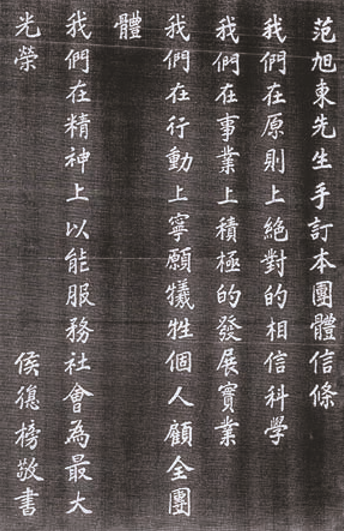 范旭東先生手訂本團體信條
我們在原則上絕對的相信科學
我們在事業上積極的發展實業
我們在行動上寧願犧牲個人顧全團
體
我們在精神上以能服務社會為最大
光榮
侯德榜敬書